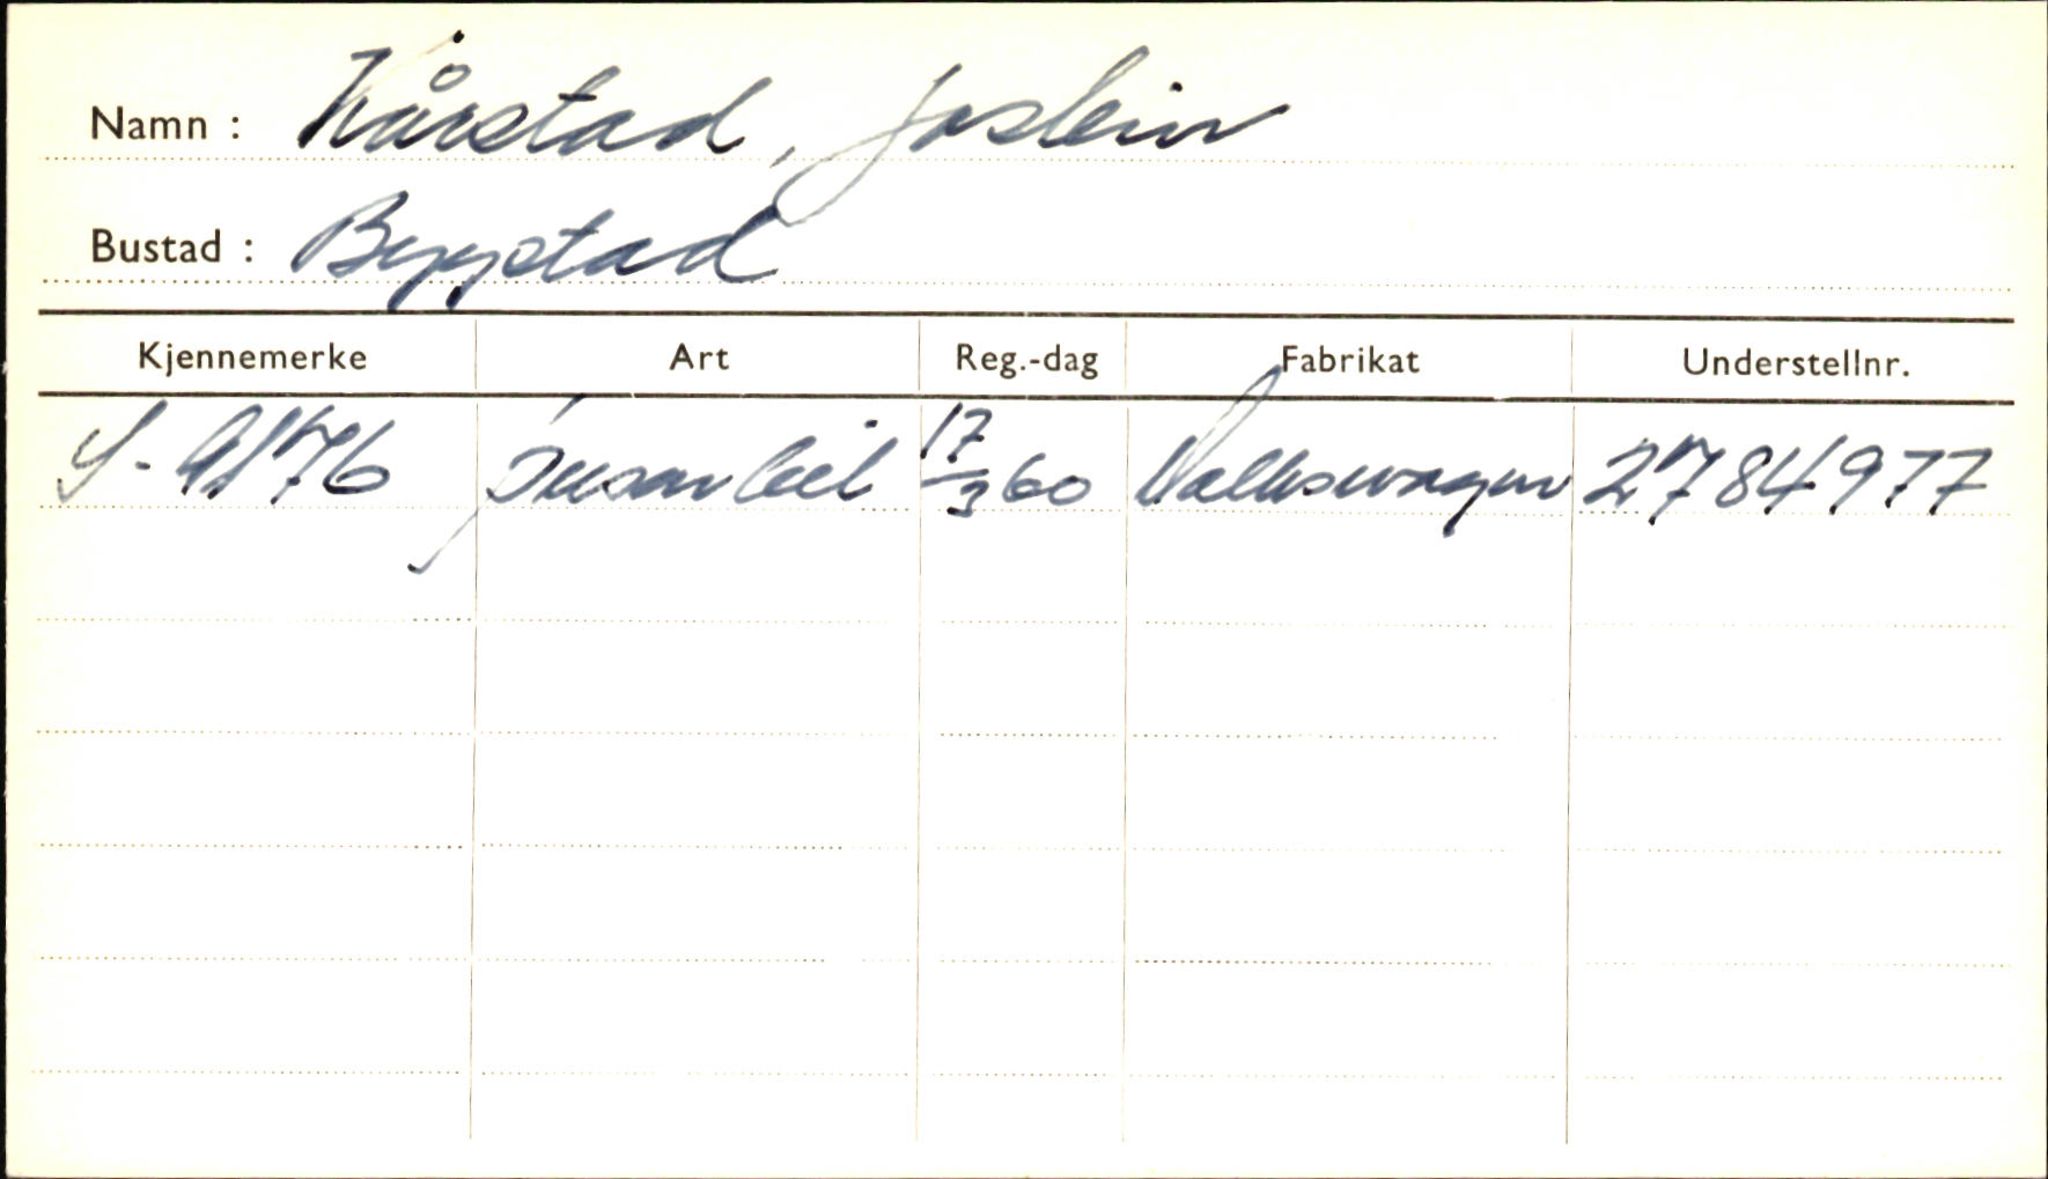 Namn : Kårstad, Jostein
Bustad : Bygstad
Kjennemerke Art Reg.-dag Fabrikat Understellnr.
Personbil 17/3 60 Volkswagen 2784977